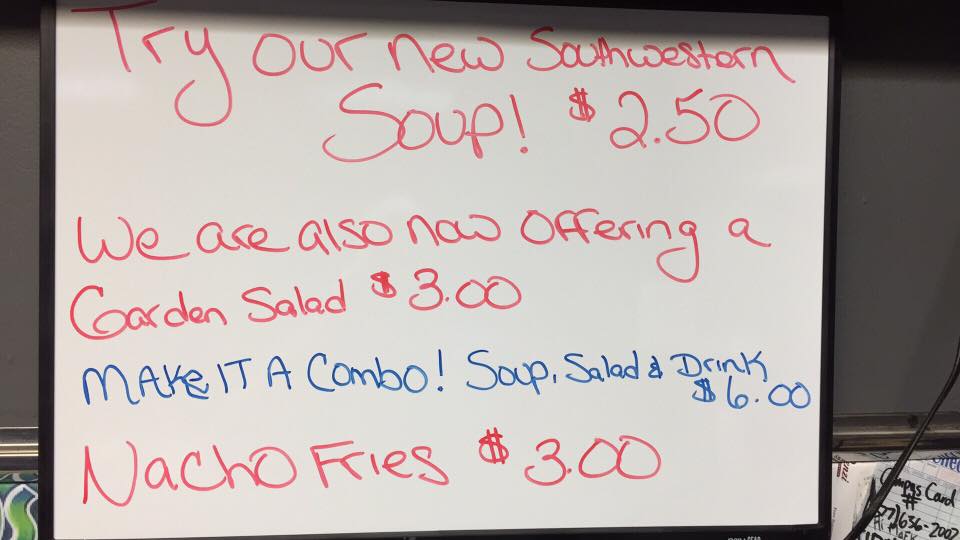 Try our new Southwestern
Soup! $2.50
We are also now offering a
Garden Salad $3.00
MAKE IT A Combo! Soup, Salad & Drink
$6.00
Nacho Fries $3.00
Campus Card
#
636-2002